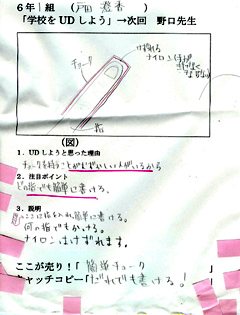 6年1組 (戸田 澄香)
「学校をUDしよう」→次回 野口先生
チョーク
ナイロン
指
(図)
1. UDしようと思った理由
チョークを持つことがむずかしい人がいるから
2. 注目ポイント
どの指でも簡単に書ける。
3. 説明
ここに指を入れ、簡単に書ける。
何の指でもかける。
ナイロンはけずれます。
ここが売り!「簡単チョーク」
キャッチコピー「だれでも書ける!」